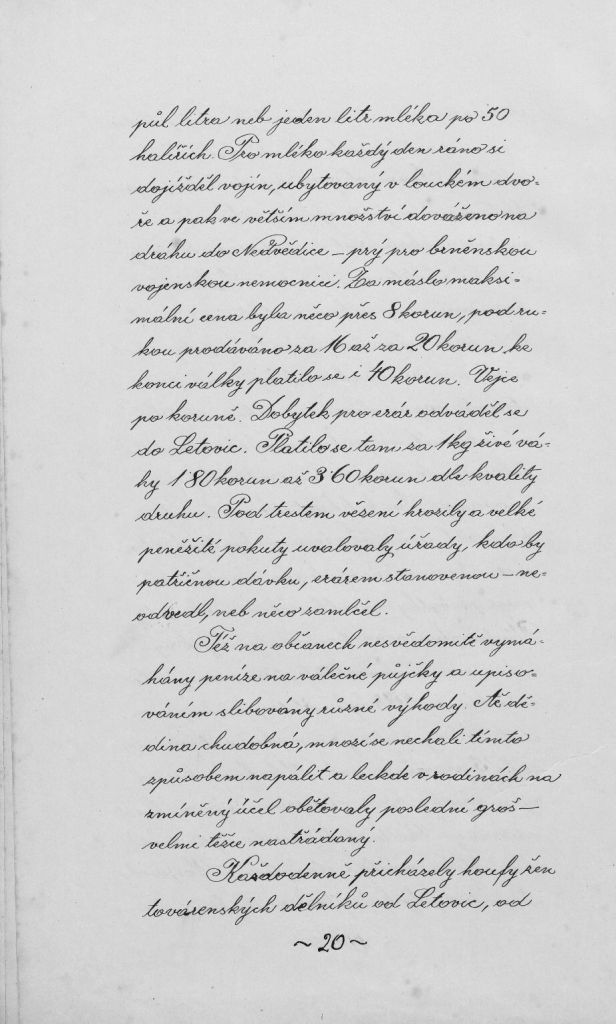 půl litra neb jeden litr mléka po 50
halířích. Pro mléko každý den ráno si
dojížděl vojín, ubytovaný v louckém dvo-
ře a pak ve větším množství dováženo na
dráhu do Nedvědice – prý pro brněnskou
vojenskou nemocnici. Za máslo maksi-
mální cena byla něco přes 8 korun, pod ru-
kou prodáváno za 16 až za 20 korun, ke
konci války platilo se i 40 korun. Vejce
po koruně. Dobytek pro erár odváděl se
do Letovic. Platilo se tam za 1 kg živé vá-
hy 1˙80 korun až 3˙60 korun dle kvality
druhu. Pod trestem vězení hrozily a velké
peněžité pokuty uvalovaly úřady, kdo by
patřičnou dávku, erárem stanovenou – ne-
odvedl, neb něco zamlčel.
Též na občanech nesvědomitě vymá-
hány peníze na válečné půjčky a upiso-
váním slibovány různé výhody. Ač dě-
dina chudobná, mnozí se nechali tímto
způsobem napálit a leckde v rodinách na
zmíněný účel obětovaly poslední groš –
velmi těžce nastřádaný.
Každodenně přicházely houfy žen
továrenských dělníků od Letovic, od
~ 20 ~